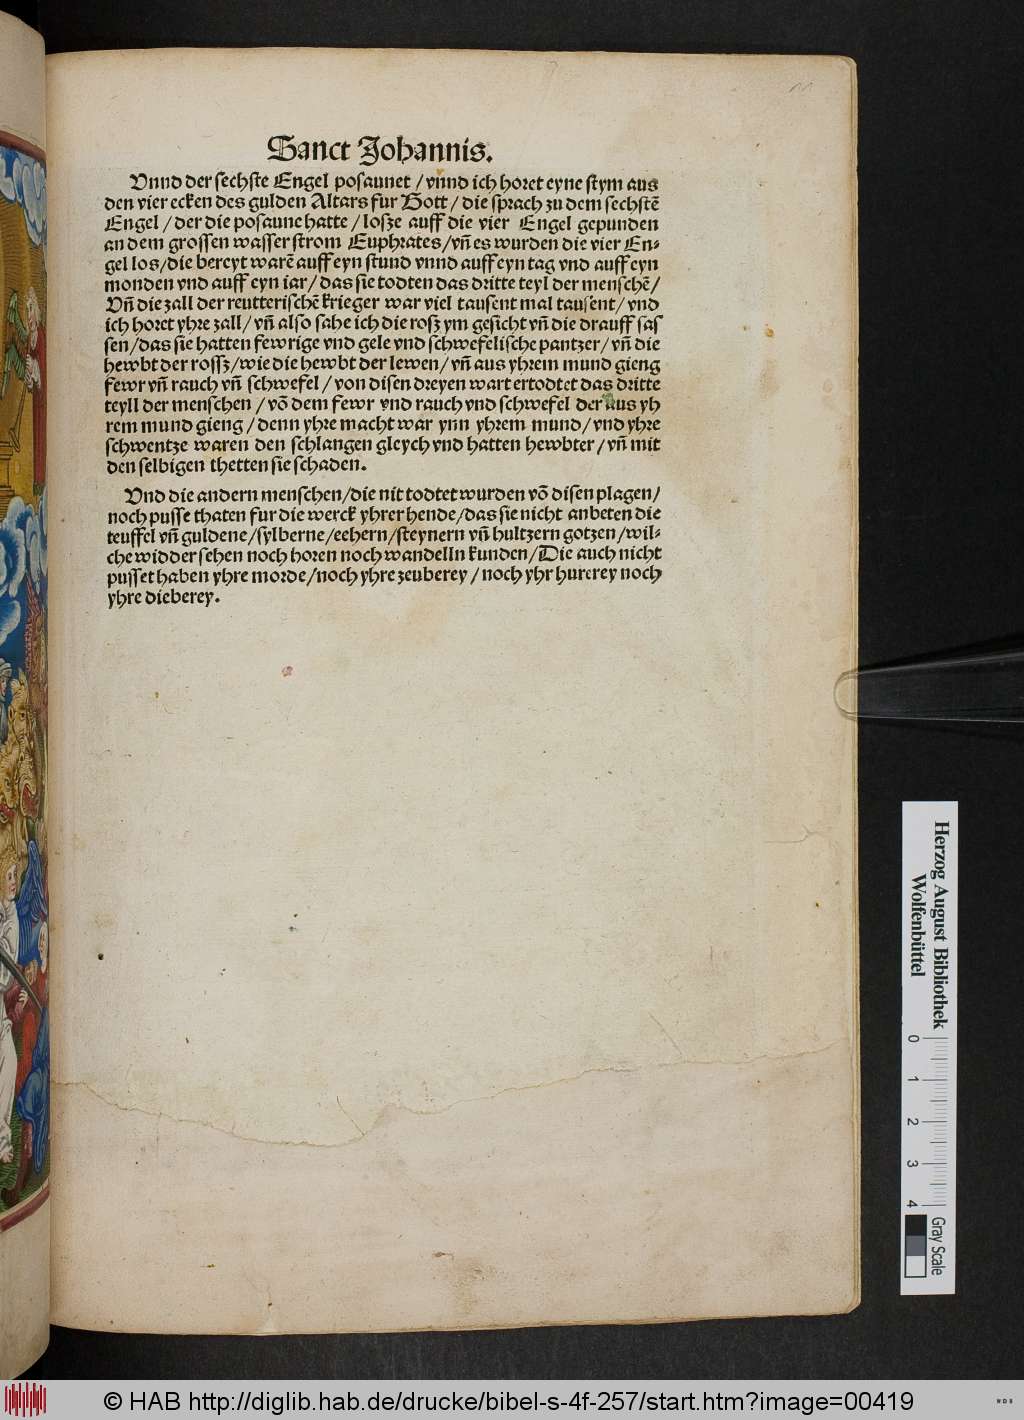 Sanct Johannis.
Vnnd der sechste Engel posaunet / vnnd ich horet eyne stym aus
den vier ecken des gulden Altars fur Gott / die sprach zu dem sechstē
Engel / der die posaune hatte / losze auff die vier Engel gepunden
an dem grossen wasser strom Euphrates / vn̄ es wurden die vier En-
gel los / die bereyt warē auff eyn stund vnnd auff eyn tag vnd auff eyn
monden vnd auff eyn iar / das sie todten das dritte teyl der menschē /
Vn̄ die zall der reutterischē krieger war viel tausent mal tausent / vnd
ich horet yhre zall / vn̄ also sahe ich die rosz ym gesicht vn̄ die drauff sas
sen / das sie hatten fewrige vnd gele vnd schwefelische pantzer / vn̄ die
hewbt der rossz / wie die hewbt der lewen / vn̄ aus yhrem mund gieng
fewr vn̄ rauch vn̄ schwefel / von disen dreyen wart ertodtet das dritte
teyll der menschen / vō dem fewr vnd rauch vnd schwefel der aus yh
rem mund gieng / denn yhre macht war ynn yhrem mund / vnd yhre
schwentze waren den schlangen gleych vnd hatten hewbter / vn̄ mit
den selbigen thetten sie schaden.
Vnd die andern menschen / die nit todtet wurden vō disen plagen /
noch pusse thaten fur die werck yhrer hende / das sie nicht anbeten die
teuffel vn̄ guldene / sylberne / eehern / steynern vn̄ hultzern gotzen / wil-
che widder sehen noch horen noch wandelln kunden / Die auch nicht
pusset haben yhre morde / noch yhre zeuberey / noch yhr hurerey noch
yhre dieberey.
Herzog August Bibliothek
Wolfenbüttel
0 1 2 3 4
Gray Scale
© HAB http://diglib.hab.de/drucke/bibel-s-4f-257/start.htm?image=00419